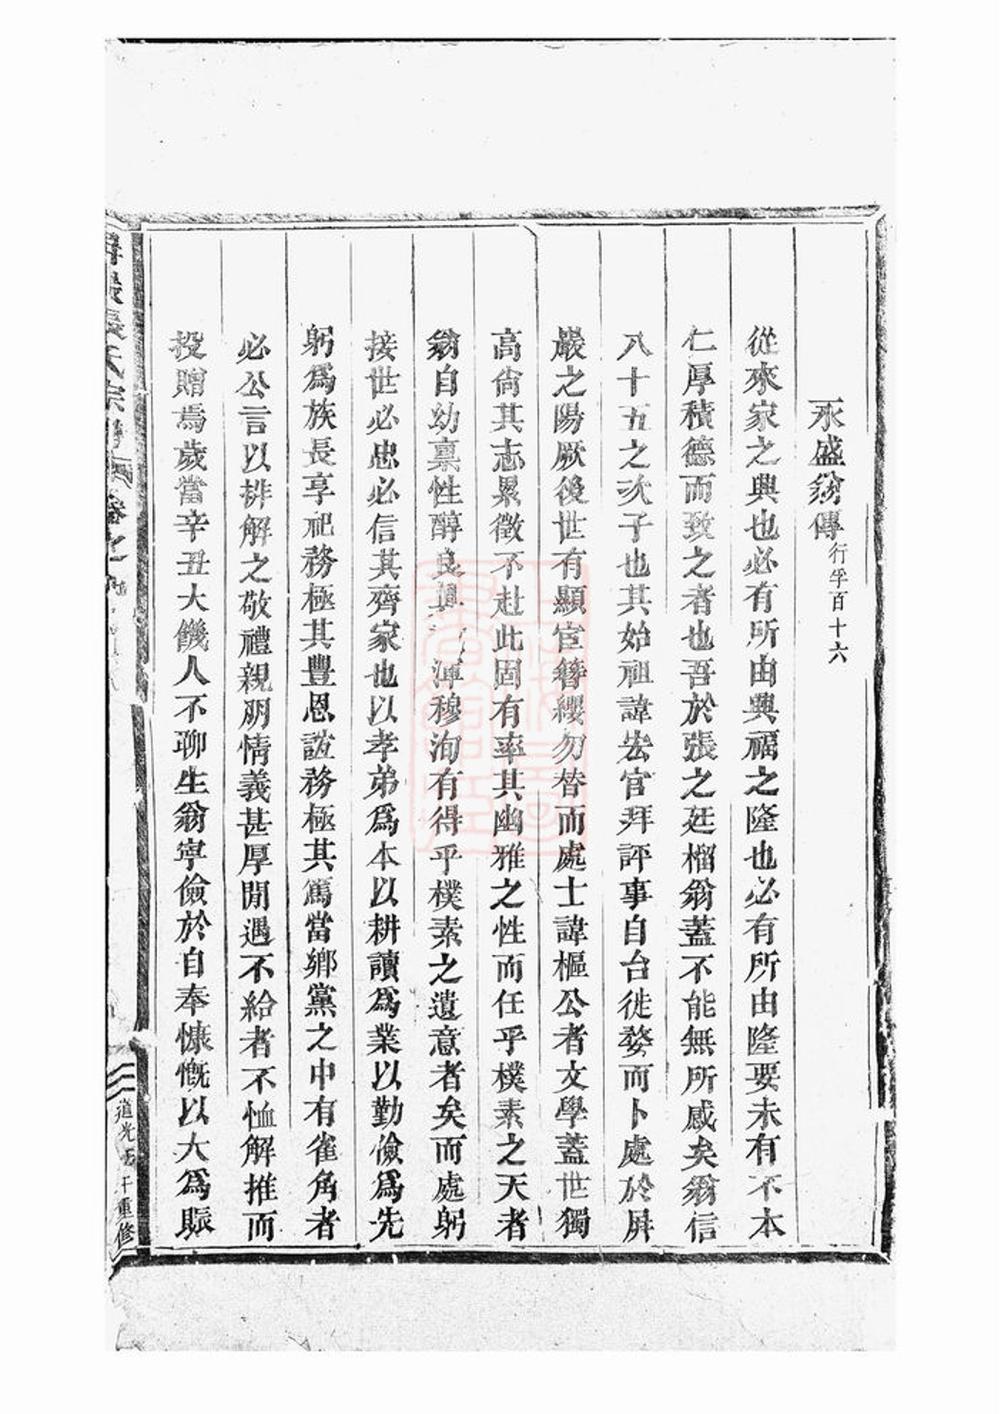 永盛翁傳行孚百十六
從來家之興也必有所由興福之隆也必有所由隆要未有不本
仁厚積德而致之者也吾於張之廷榴翁蓋不能無所感矣翁信
八十五之次子也其始祖諱宏官拜評事自台徙婺而卜處於屏
巖之陽厥後世有顯宦簪纓勿替而處士諱樞公者文學蓋世獨
高尚其志累徵不赴此固有率其幽雅之性而任乎樸素之天者
翁自幼稟性醇良其渾穆洵有得乎樸素之遺意者矣而處躬
接世必忠必信其齊家也以孝弟爲本以耕讀爲業以勤儉爲先
躬爲族長享祀務極其豐恩誼務極其篤當鄉黨之中有雀角者
必公言以排解之敬禮親朋情義甚厚閒遇不給者不恤解推而
投贈焉歲當辛丑大饑人不聊生翁寧儉於自奉慷慨以大爲賑
屏巖張氏宗譜 卷之
道光 午重修